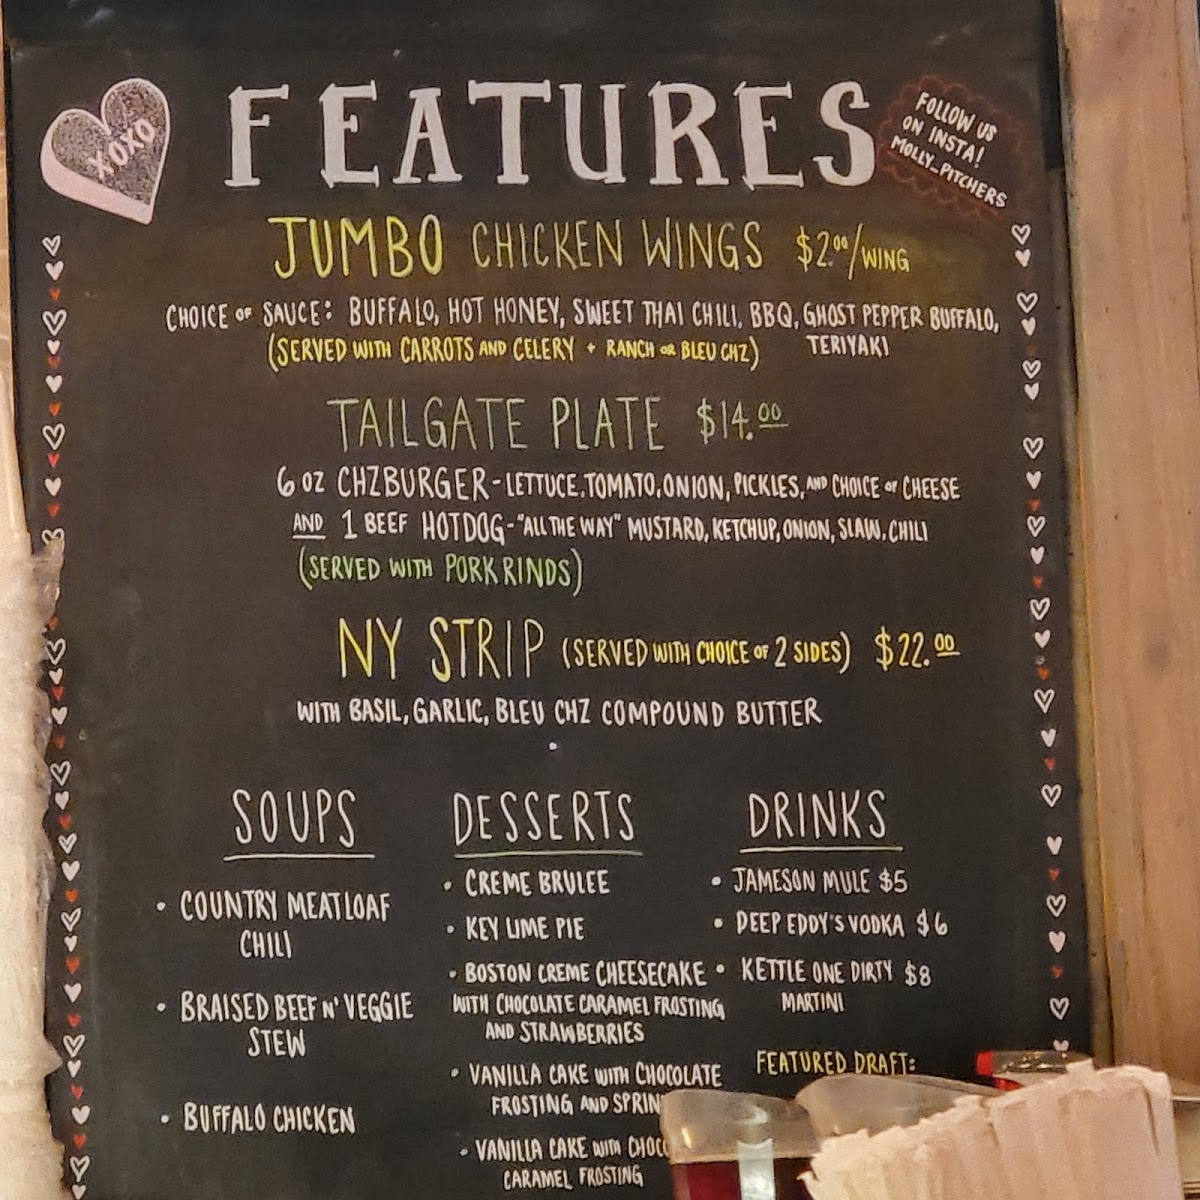 XOXO
FEATURES
FOLLOW US
ON INSTA!
MOLLY_PITCHERS
JUMBO CHICKEN WINGS $2.00/WING
CHOICE OF SAUCE: BUFFALO, HOT HONEY, SWEET THAI CHILI, BBQ, GHOST PEPPER BUFFALO,
TERIYAKI
(SERVED WITH CARROTS AND CELERY + RANCH OR BLEU CHZ)
TAILGATE PLATE $14.00
6 OZ CHZBURGER - LETTUCE, TOMATO, ONION, PICKLES, AND CHOICE OF CHEESE
AND 1 BEEF HOTDOG - "ALL THE WAY" MUSTARD, KETCHUP, ONION, SLAW, CHILI
(SERVED WITH PORK RINDS)
NY STRIP (SERVED WITH CHOICE OF 2 SIDES) $22.00
WITH BASIL, GARLIC, BLEU CHZ COMPOUND BUTTER
SOUPS
• COUNTRY MEATLOAF
CHILI
• BRAISED BEEF N' VEGGIE
STEW
• BUFFALO CHICKEN
DESSERTS
• CREME BRULEE
• KEY LIME PIE
• BOSTON CREME CHEESECAKE
WITH CHOCOLATE CARAMEL FROSTING
AND STRAWBERRIES
• VANILLA CAKE WITH CHOCOLATE
FROSTING AND
• VANILLA CAKE WITH
CARAMEL FROSTING
DRINKS
• JAMESON MULE $5
• DEEP EDDY'S VODKA $6
• KETTLE ONE DIRTY $8
MARTINI
FEATURED DRAFT: